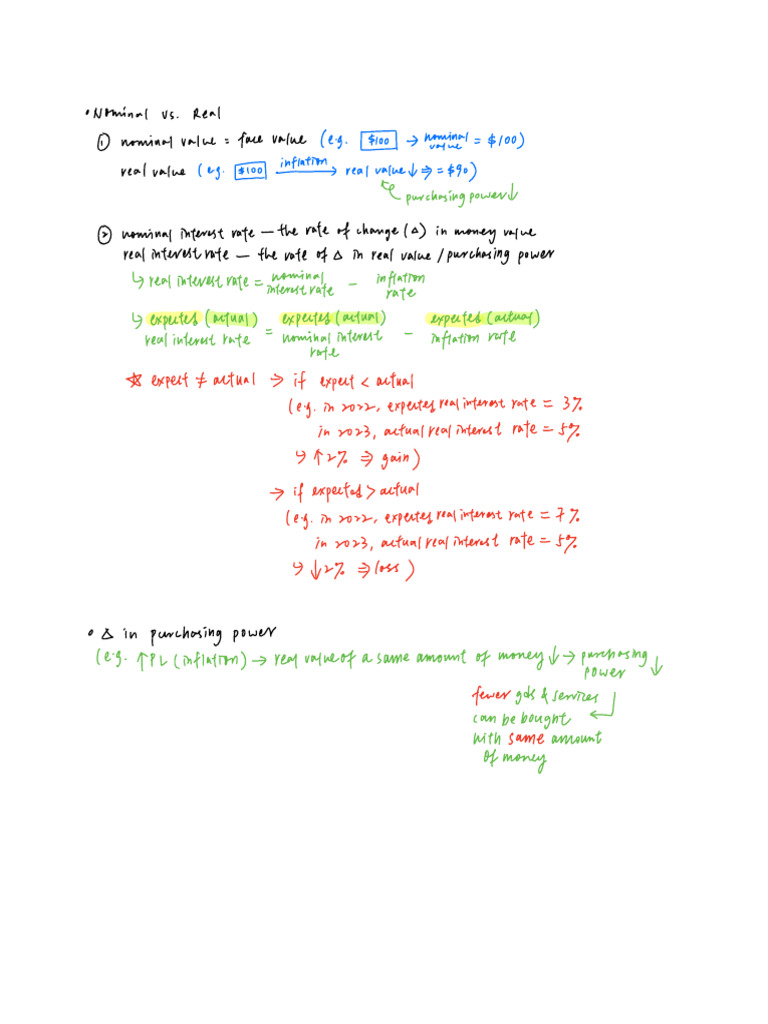 • Nominal vs. Real
① nominal value = face value (e.g. $100 → nominal value = $100)
real value (e.g. $100 inflation → real value ↓ ⇒ = $90)
purchasing power ↓
② nominal interest rate — the rate of change (Δ) in money value
real interest rate — the rate of Δ in real value / purchasing power
↳ real interest rate = nominal interest rate − inflation rate
↳ expected (actual) real interest rate = expected (actual) nominal interest rate − expected (actual) inflation rate
☆ expect ≠ actual → if expect < actual
(e.g. in 2022, expected real interest rate = 3%
in 2023, actual real interest rate = 5%
↳ ↑2% ⇒ gain)
→ if expected > actual
(e.g. in 2022, expected real interest rate = 7%
in 2023, actual real interest rate = 5%
↳ ↓2% ⇒ loss)
• Δ in purchasing power
(e.g. ↑PL (inflation) → real value of a same amount of money ↓ → purchasing power ↓
fewer gds & services
can be bought
with same amount
of money